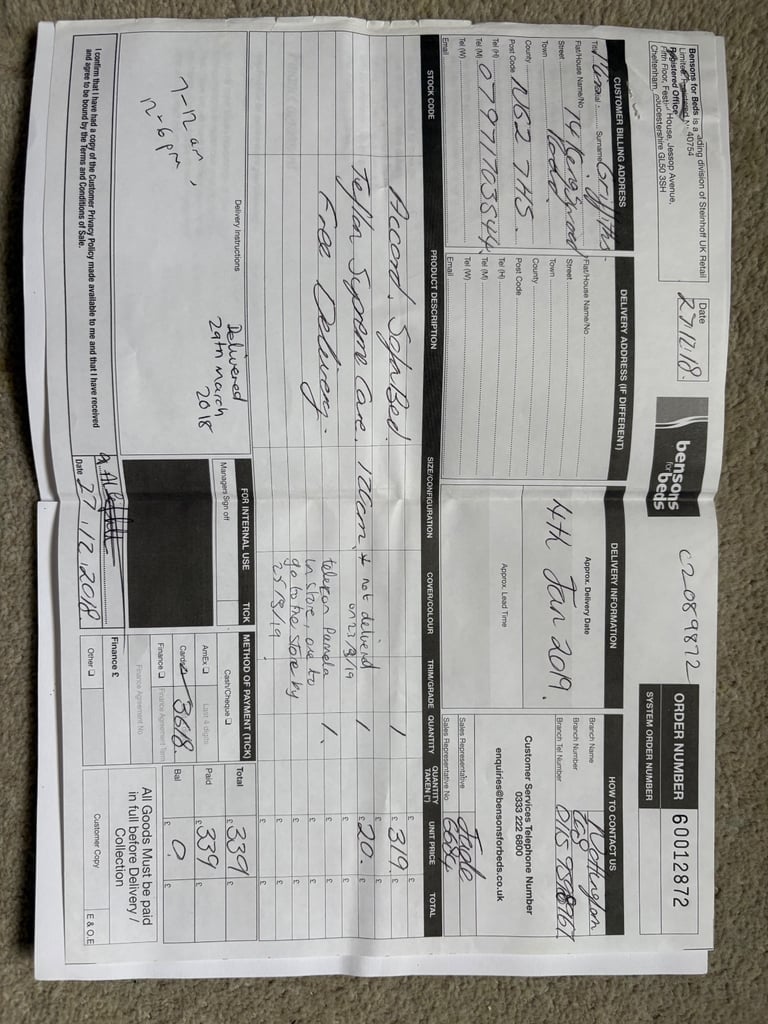 Bensons for Beds is a trading division of Steinhoff UK Retail
Limited. No. 40754
Registered Office:
Fifth Floor, Festival House, Jessop Avenue,
Cheltenham, Gloucestershire GL50 3SH
Date
27/12/18.
bensons
for
beds
C2089872
ORDER NUMBER 60012872
SYSTEM ORDER NUMBER
CUSTOMER BILLING ADDRESS
DELIVERY ADDRESS (IF DIFFERENT)
DELIVERY INFORMATION
HOW TO CONTACT US
Title Initial Surname Griffiths.
Flat/House Name/No 74
Street Road
Town
County
Post Code NG2 7HS.
Tel (H)
Tel (M)
Tel (W)
Email
Flat/House Name/No
Street
Town
County
Post Code
Tel (H)
Tel (M)
Tel (W)
Email
Approx. Delivery Date
4th Jan 2019.
Approx. Lead Time
Branch Name Nottingham
Branch Number
Branch Tel Number
Customer Services Telephone Number
0333 222 6800
enquiries@bensonsforbeds.co.uk
Sales Representative Jade
Sales Representative No
STOCK CODE PRODUCT DESCRIPTION SIZE/CONFIGURATION COVER/COLOUR TRIM/GRADE QUANTITY QUANTITY TAKEN (*) UNIT PRICE TOTAL
Accord. Sofa Bed. 1 £ 319.
Teflon Supreme Care 120cm. * not delivered 1 £ 20.
on 23/3/19
Free Delivery. 1.
telekon Pamela
in store, one to
go to the store by
25/3/19
Delivery Instructions
7-12 am,
12-6pm
Delivered
29th March
2018
FOR INTERNAL USE TICK
Managers Sign off
METHOD OF PAYMENT (TICK)
Cash/Cheque
AmEx Last 4 digits
Cards 3618.
Finance Finance Agreement Term
Finance Agreement No.
Finance £
Other
Total £ 339
Paid £ 339
Bal £ 0.
All Goods Must be paid
in full before Delivery /
Collection
I confirm that I have had a copy of the Customer Privacy Policy made available to me and that I have received
and agree to be bound by the Terms and Conditions of Sale.
Date 27.12.2018
Customer Copy
E & O.E